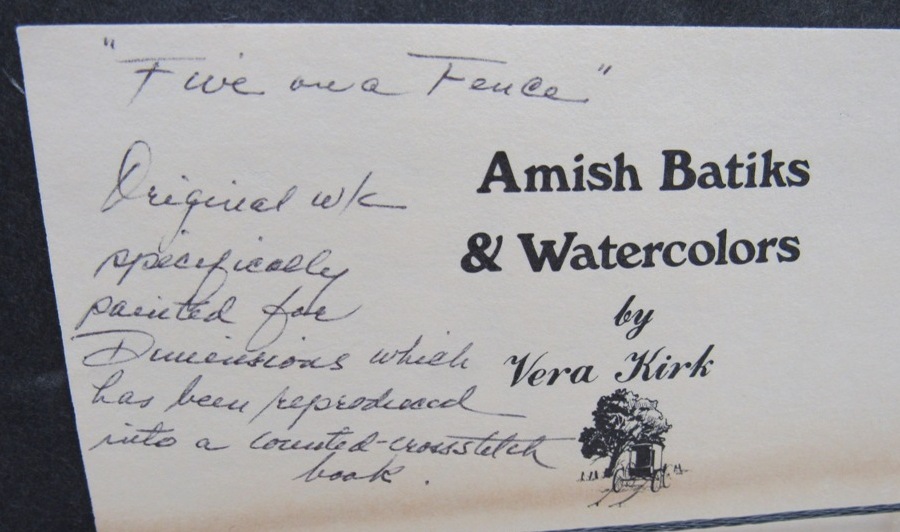 "Five on a Fence"
Original wk
specifically
painted for
Dimensions which
has been reproduced
into a counted-crosstitch
book.
Amish Batiks
& Watercolors
by
Vera Kirk